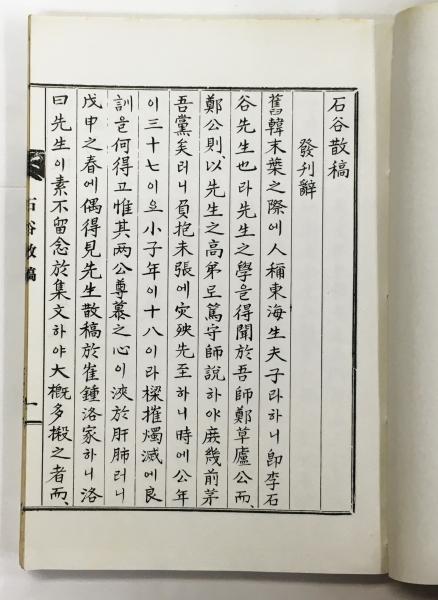 石谷散稿
發刊辭
舊韓末葉之際에人稱東海生夫子라하니卽李石
谷先生也라先生之學을得聞於吾師鄭草廬公而、
鄭公則、以先生之高弟로篤守師說하야庶幾前茅
吾黨矣러니負抱未張에灾殃先至하니時에公年
이三十七이오小子年이十八이라樑摧燭滅에良
訓을何得고惟其两公尊慕之心이浹於肝肺러니
戊申之春에偶得見先生散稿於崔鍾洛家하니洛
曰先生이素不留念於集文하야大槪多搬之者而、
石谷散稿
一